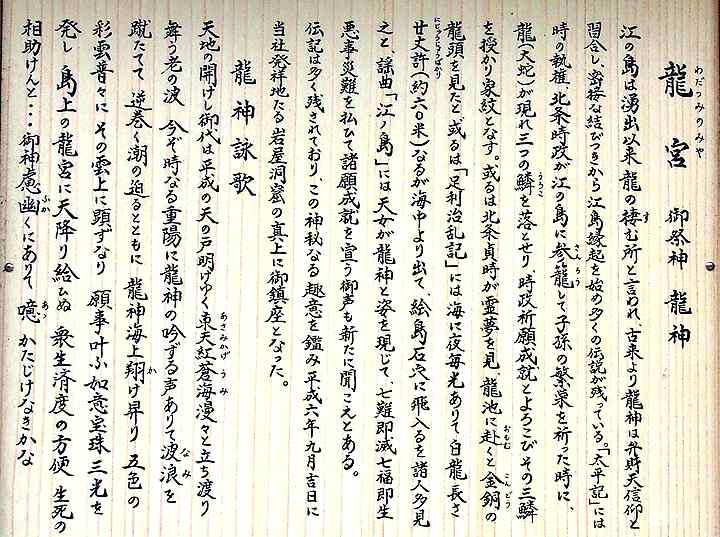 わだつみのみや
龍宮 御祭神 龍神
江の島は湧出以来龍の棲む所と言われ、古来より龍神は弁財天信仰と
習合し、密接な結びつきから江島縁起を始め多くの伝説が残っている。「太平記」には
時の執権、北条時政が江の島に参籠して子孫の繁栄を祈った時に、
龍(大蛇)が現れ三つの鱗を落とせり、時政祈願成就とよろこびその三鱗
を授かり家紋となす。或るは北条貞時が霊夢を見、龍池に赴くと金銅の
龍頭を見たと、或るは「足利治乱記」には海に夜毎光ありて白龍長さ
廿丈許(約六〇米)なるが海中より出て、絵島石穴に飛入るを諸人多見
之と、謡曲「江ノ島」には天女が龍神と姿を現じて、七難即滅七福即生
悪事災難を払ひて諸願成就を宣う御声も新たに聞こえとある。
伝記は多く残されており、この神秘なる趣意を鑑み平成六年九月吉日に
当社発祥地たる岩屋洞窟の真上に御鎮座となった。
龍神詠歌
天地の開けし御代は平成の天の戸明けゆく東天紅蒼海漫々と立ち渡り
舞う老の波 今ぞ時なる重陽に龍神の吟ずる声ありて波浪を
蹴たてて 逆巻く潮の迫るとともに 龍神海上翔け昇り 五色の
彩雲普々に その雲上に頭ずなり 願事叶ふ如意宝珠三光を
発し 島上の龍宮に天降り給ひぬ 衆生済度の方便 生死の
相助けんと…御神慮幽くにありて 噫 かたじけなきかな